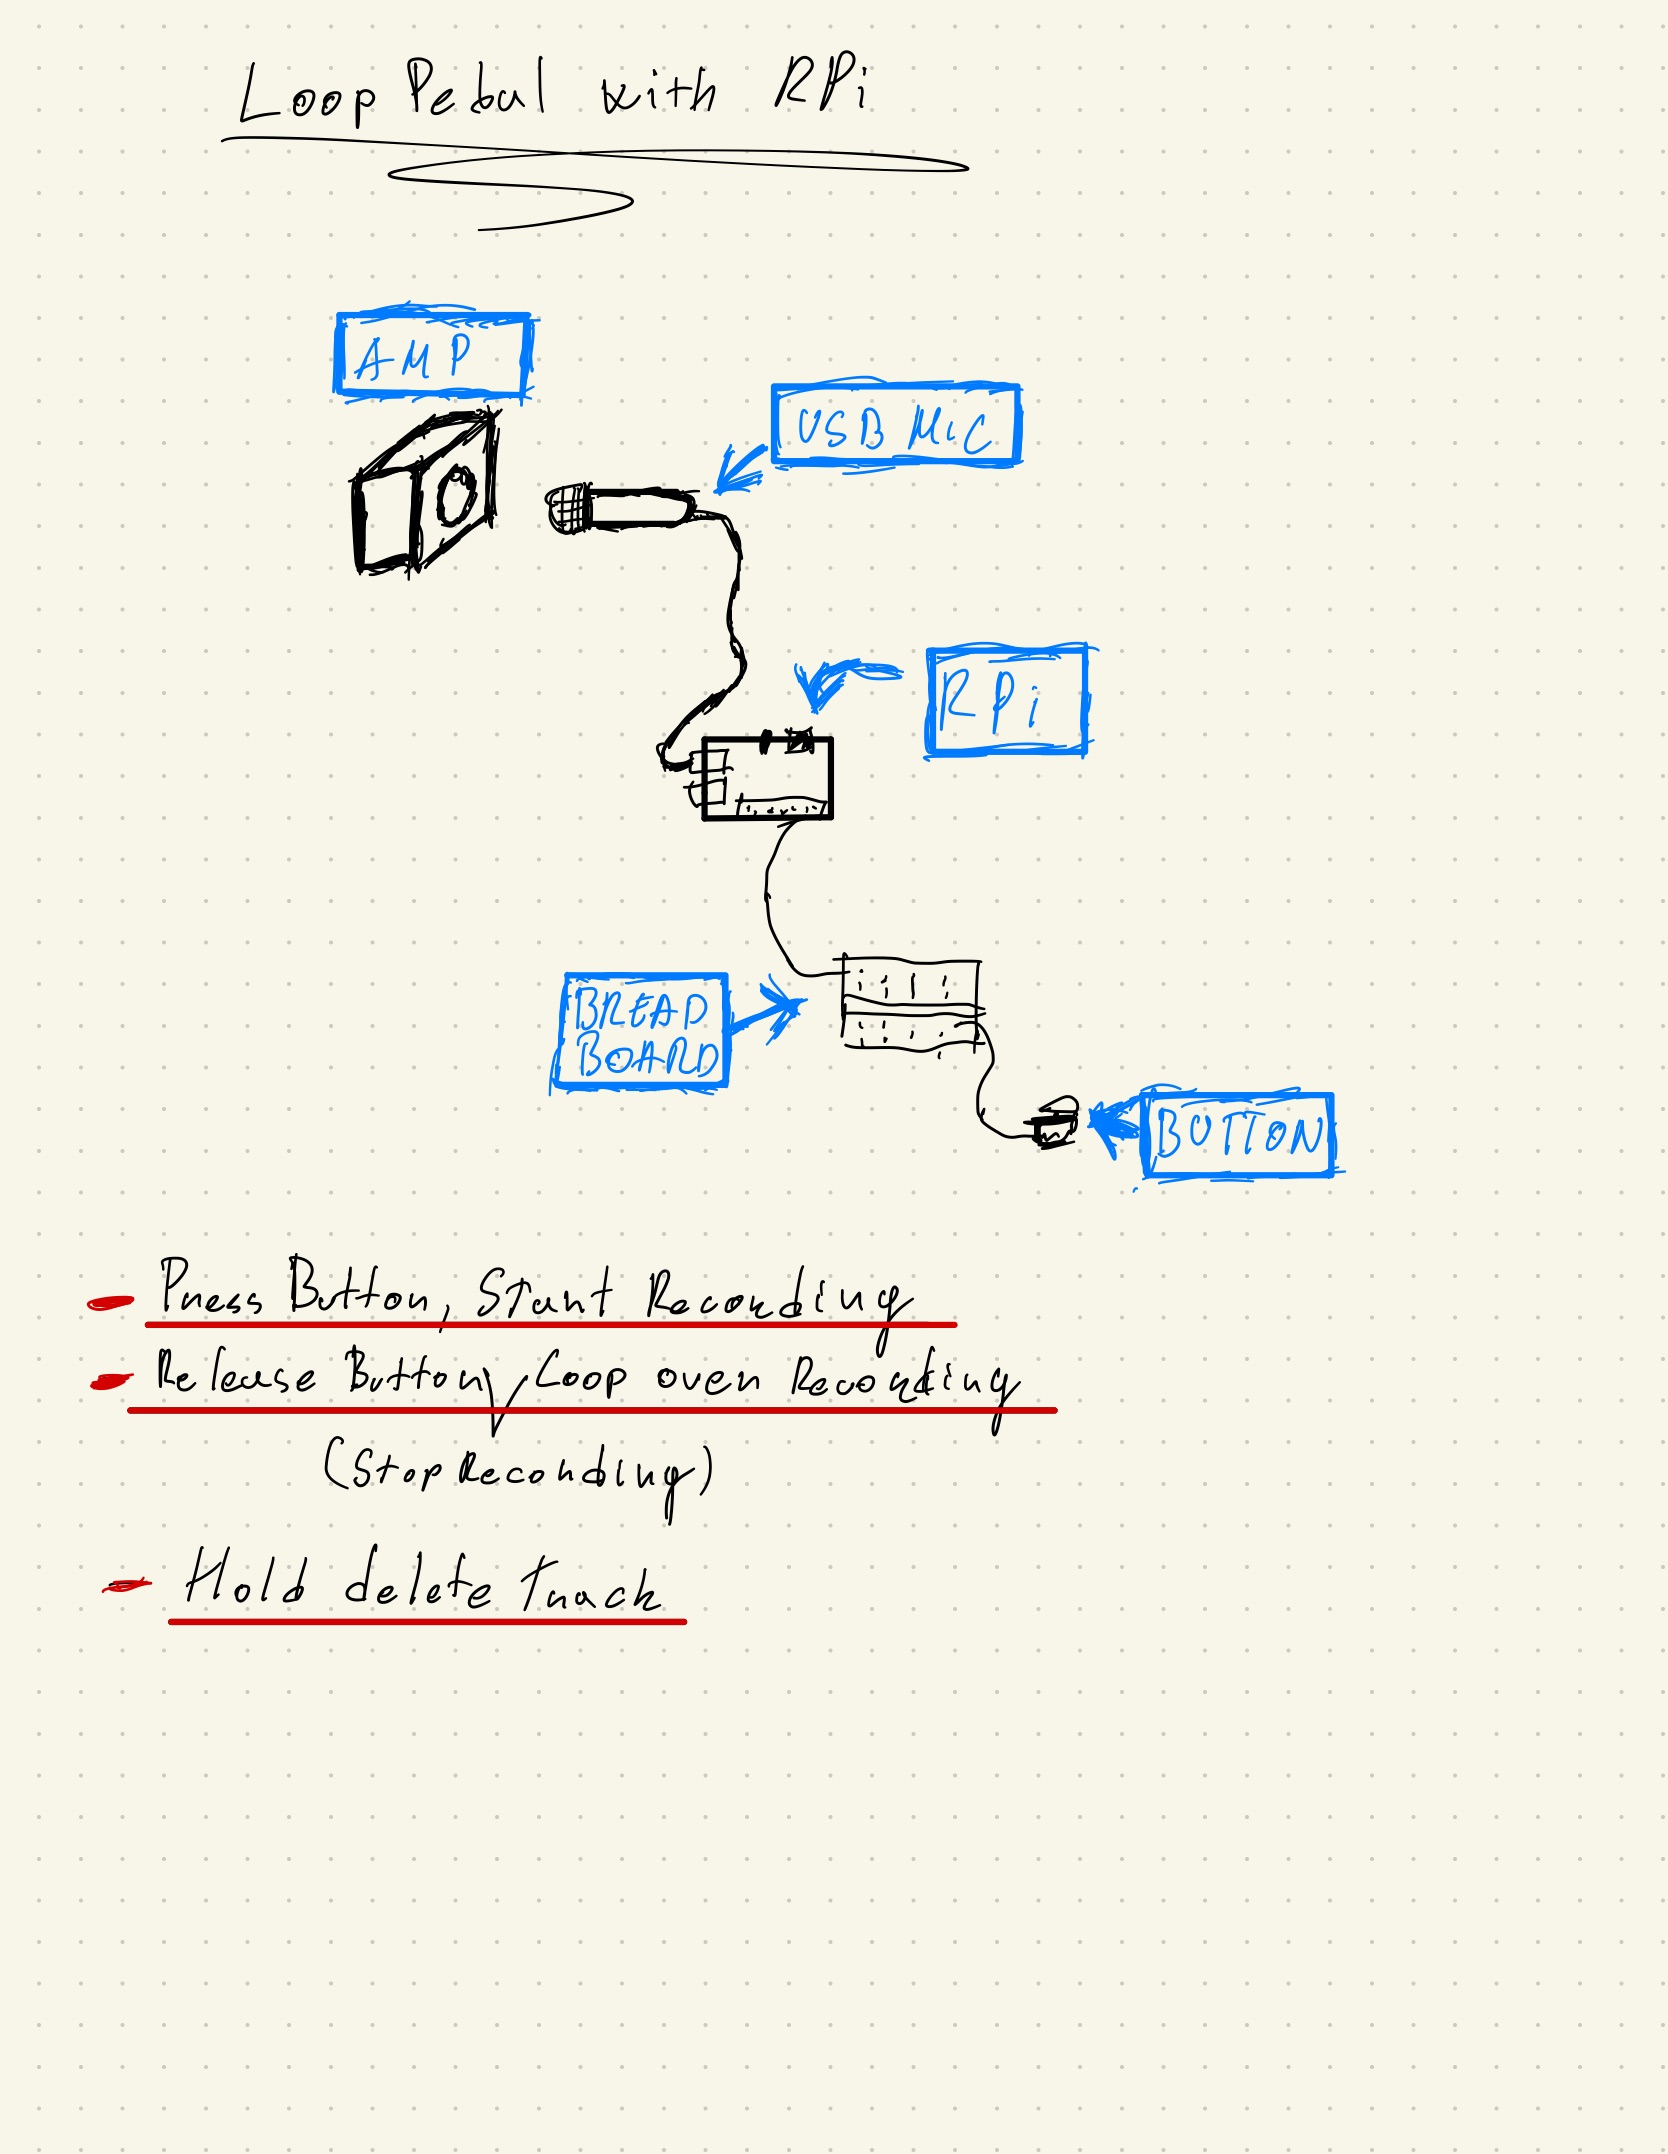 Loop Pedal with RPi
AMP
USB MiC
RPi
BREAD
BOARD
BUTTON
- Press Button, Start Recording
- Release Button, Loop over Recording
(Stop Recording)
- Hold delete Track